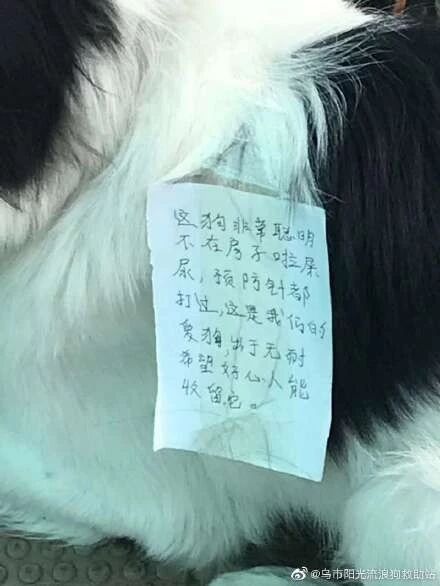 这狗非常聪明
不在房子啦屎
尿，预防针都
打过，这是我们的
爱狗，出于无耐
希望好心人能
收留它。
@乌市阳光流浪狗救助站